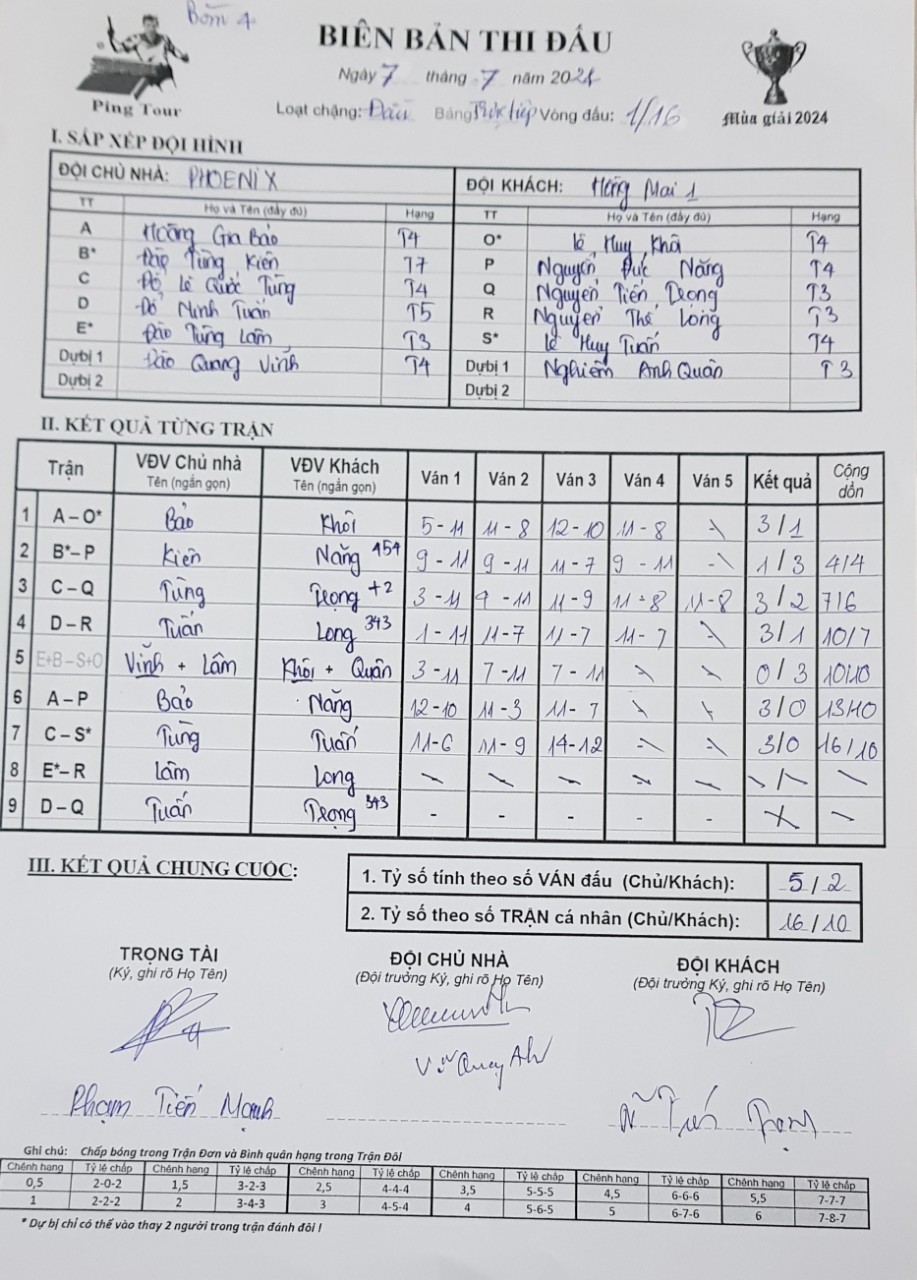 Bàn 4
BIÊN BẢN THI ĐẤU
Ngày 7 tháng 7 năm 2024
Ping Tour
Loạt chặng: Đấu Bảng Trực tiếp Vòng đấu: 1/16
Mùa giải 2024
I. SẮP XẾP ĐỘI HÌNH
ĐỘI CHỦ NHÀ: PHOENIX ĐỘI KHÁCH: Hồng Mai 1
TT Họ và Tên (đầy đủ) Hạng TT Họ và Tên (đầy đủ) Hạng
A Hoàng Gia Bảo T4 O* Lê Huy Khôi T4
B* Đào Tùng Kiên T7 P Nguyễn Đức Năng T4
C Đỗ Lê Quốc Tùng T4 Q Nguyễn Tiến Trọng T3
D Đỗ Ninh Tuấn T5 R Nguyễn Thế Long T3
E* Đào Tùng Lâm T3 S* Lê Huy Tuấn T4
Dự bị 1 Đào Quang Vinh T4 Dự bị 1 Nghiêm Anh Quân T3
Dự bị 2 Dự bị 2
II. KẾT QUẢ TỪNG TRẬN
Trận VĐV Chủ nhà Tên (ngắn gọn) VĐV Khách Tên (ngắn gọn) Ván 1 Ván 2 Ván 3 Ván 4 Ván 5 Kết quả Cộng dồn
1 A – O* Bảo Khôi 5-11 11-8 12-10 11-8 \ 3/1
2 B* – P Kiên Năng 454 9-11 9-11 11-7 9-11 - 1/3 4/4
3 C – Q Tùng Trọng +2 3-11 9-11 11-9 11-8 11-8 3/2 7/6
4 D – R Tuấn Long 343 1-11 11-7 11-7 11-7 \ 3/1 10/7
5 E+B – S+O Vinh + Lâm Khôi + Quân 3-11 7-11 7-11 \ \ 0/3 10/10
6 A – P Bảo Năng 12-10 11-3 11-7 \ \ 3/0 13/10
7 C – S* Tùng Tuấn 11-6 11-9 14-12 \ \ 3/0 16/10
8 E* – R Lâm Long \ \ \ \ \ \/\ \
9 D – Q Tuấn Trọng 343 - - - - - X \
III. KẾT QUẢ CHUNG CUỘC:
1. Tỷ số tính theo số VÁN đấu (Chủ/Khách): 5/2
2. Tỷ số theo số TRẬN cá nhân (Chủ/Khách): 16/10
TRỌNG TÀI ĐỘI CHỦ NHÀ ĐỘI KHÁCH
(Ký, ghi rõ Họ Tên) (Đội trưởng Ký, ghi rõ Họ Tên) (Đội trưởng Ký, ghi rõ Họ Tên)
Phạm Tiến Mạnh
Ghi chú: Chấp bóng trong Trận Đơn và Bình quân hạng trong Trận Đôi
Chênh hạng Tỷ lệ chấp Chênh hạng Tỷ lệ chấp Chênh hạng Tỷ lệ chấp Chênh hạng Tỷ lệ chấp Chênh hạng Tỷ lệ chấp Chênh hạng Tỷ lệ chấp
0,5 2-0-2 1,5 3-2-3 2,5 4-4-4 3,5 5-5-5 4,5 6-6-6 5,5 7-7-7
1 2-2-2 2 3-4-3 3 4-5-4 4 5-6-5 5 6-7-6 6 7-8-7
* Dự bị chỉ có thể vào thay 2 người trong trận đánh đôi !